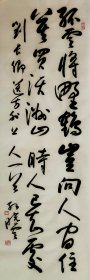 孤云将野鹤岂向人间住
莫买沃洲山时人已知处
刘长卿送方外上人一首